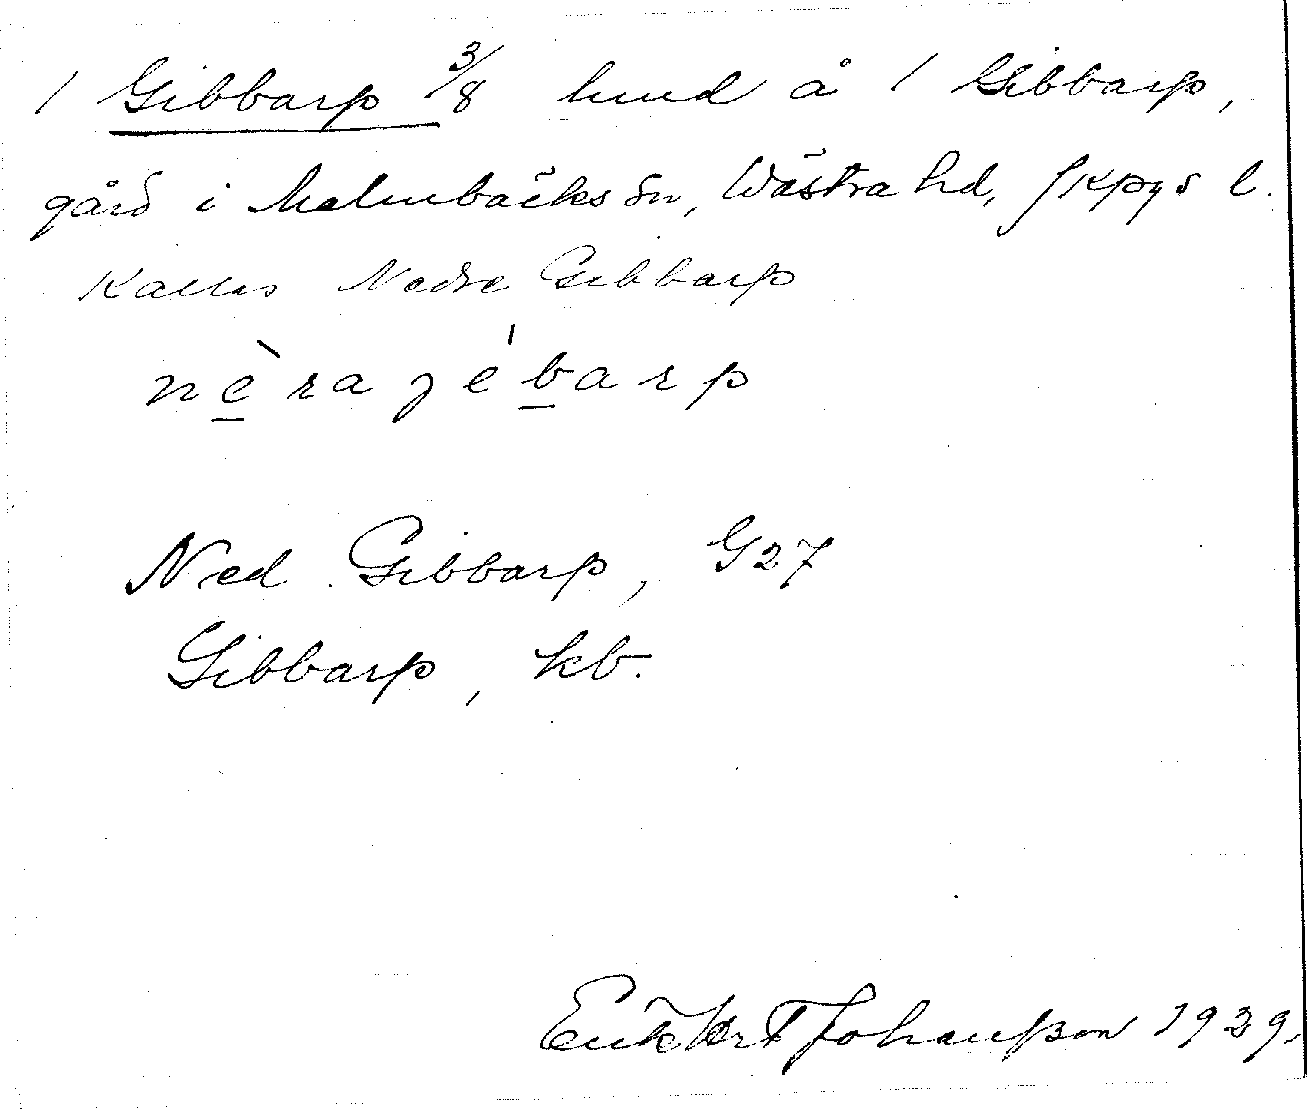 1 Gibbarp 3/8 lund å 1 Gibbarp,
gård i Malmbäcks sn, Västra hd, Jkpgs l.
Kallas Nedre Gibbarp
nèra jébarp
Ned. Gibbarp, G27
Gibbarp, kb.
Johansson 1929.